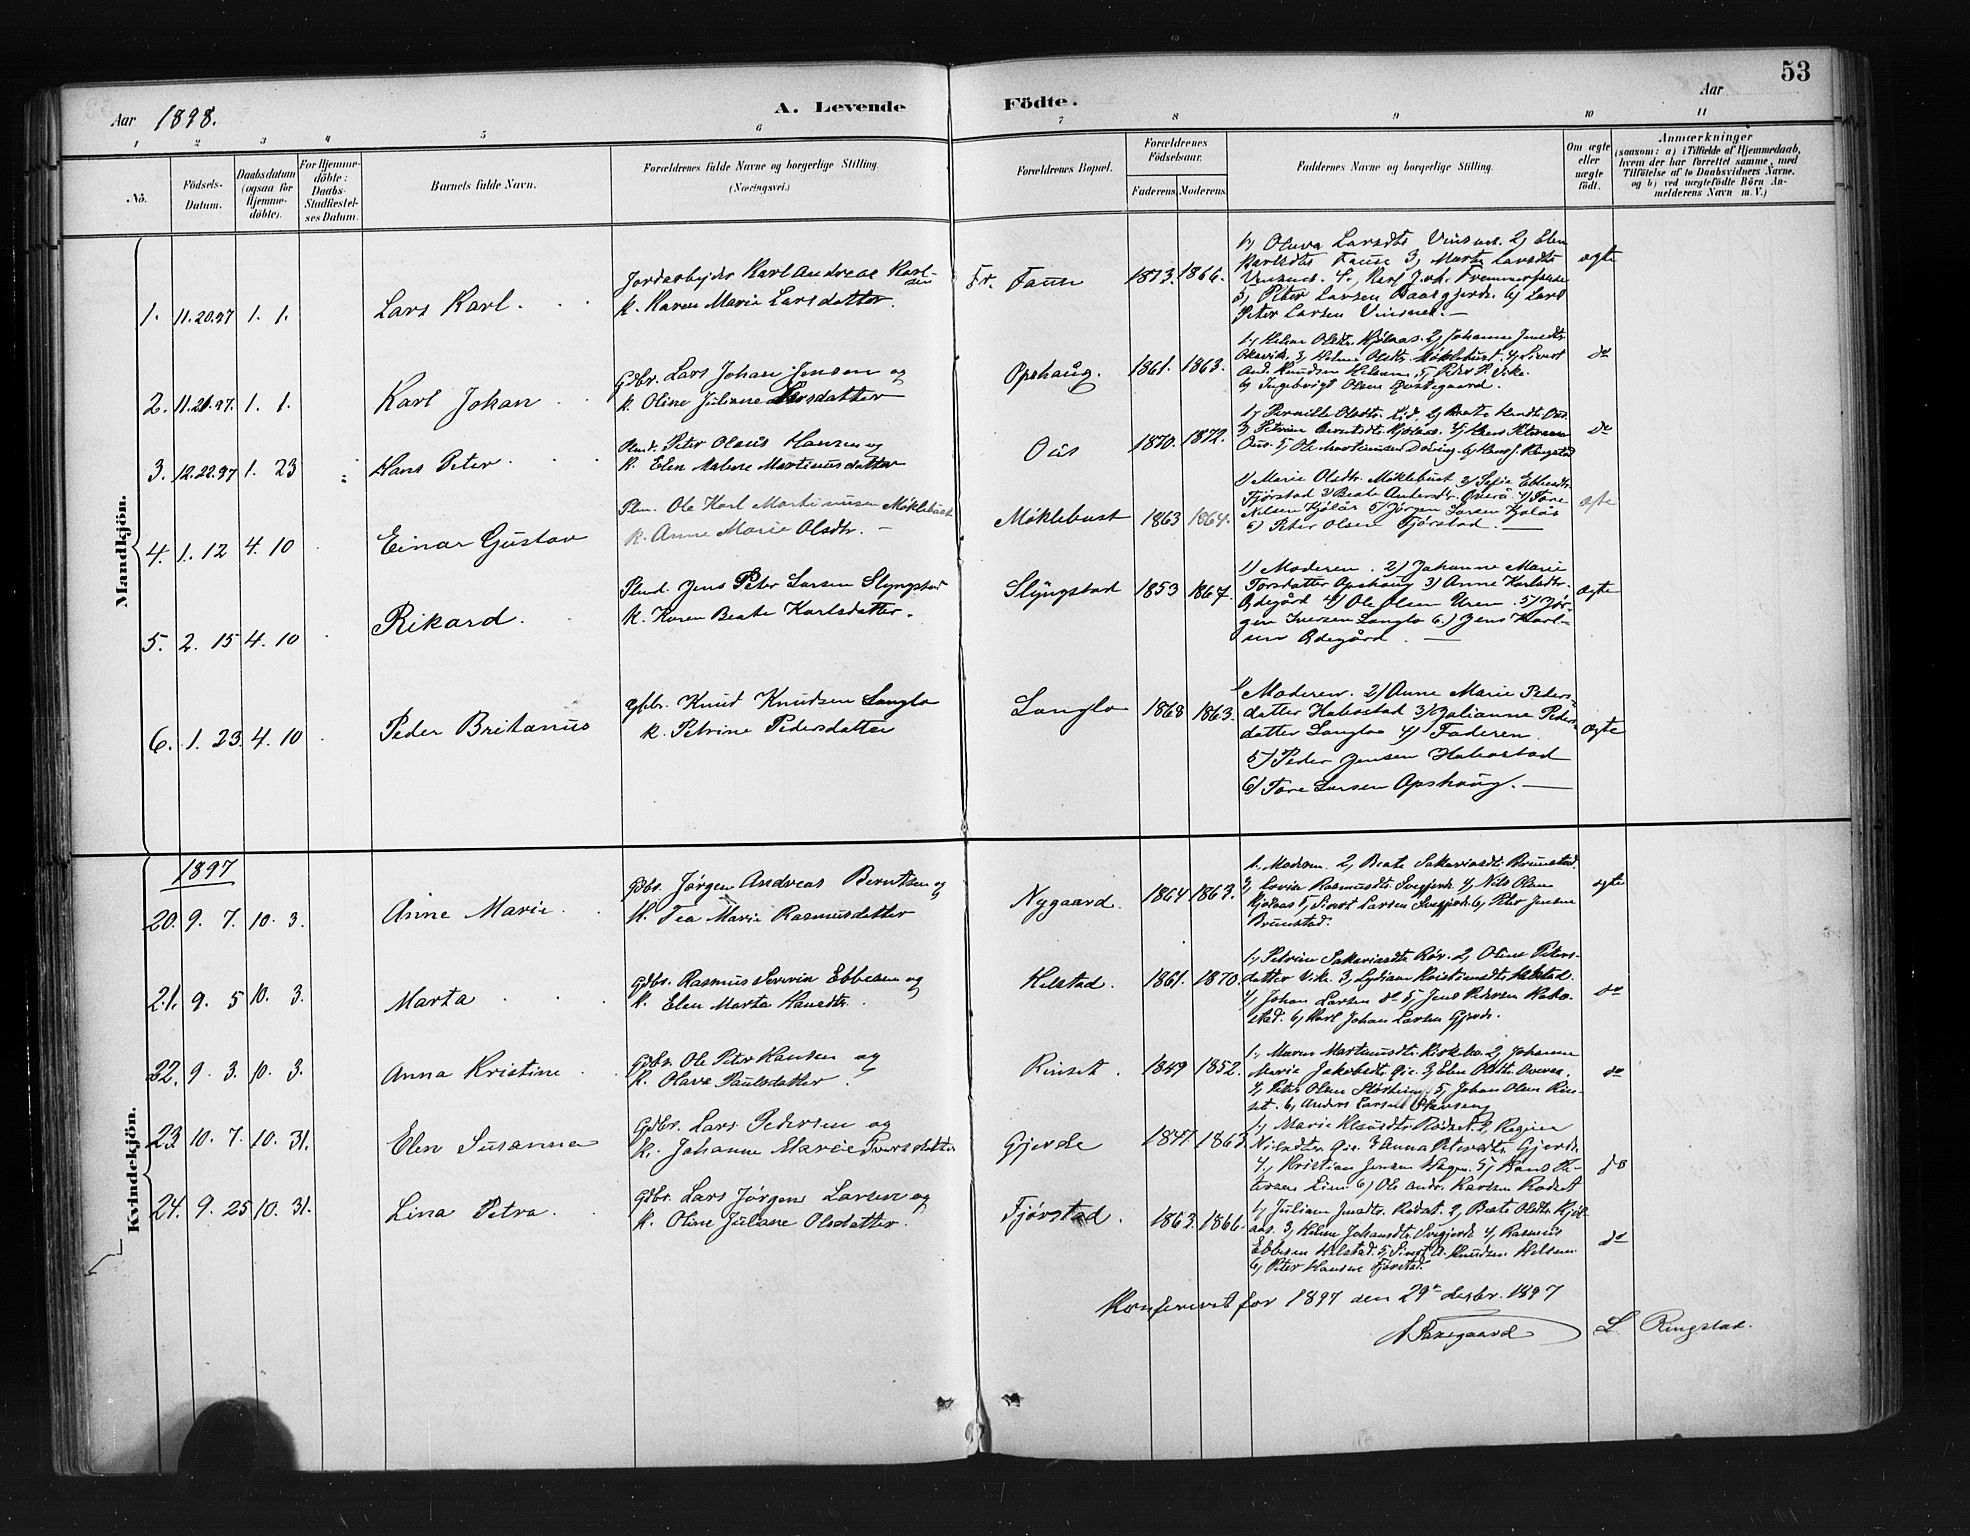 53
Aar 1898.
A. Levende Födte.
Aar
1 2 3 4 5 6 7 8 9 10 11
Nö.
Födsels-Datum.
Daabsdatum (ogsaa for Hjemmedöbte).
For Hjemmedöbte: Daabs-Stadfæstelses Datum.
Barnets fulde Navn.
Forældrenes fulde Navne og borgerlige Stilling. (Næringsvei.)
Forældrenes Bopæl.
Forældrenes Födselsaar.
Faderens. Moderens.
Faddernes Navne og borgerlige Stilling.
Om ægte eller uægte födt.
Anmærkninger
(saasom: a) i Tilfælde af Hjemmedaab,
hvem der har forrettet samme, med
Tilföielse af to Daabsvidners Navne,
og b) ved uægtefödte Börn An-
melderens Navn m. V.)
Mandkjön.
1. 11.20.97 1. 1. Lars Karl.
Jordarbejder Karl Andreas Karlsen
k. Karen Marie Larsdatter.
Fr. Fause 1873. 1866.
1, Oluva Larsdtr Vinsnes. 2, Elen
Karlsdtr Fause 3, Marte Larsdtr
Vinsnes. 4, Karl Joh.
5, Peter Larsen 6, Lars
Peter Larsen Vinsnes.
ægte
2. 11.21.97. 1. 1. Karl Johan
Gdbr. Lars Johan Jensen og
k. Oline Juliane Larsdatter
Opshaug. 1861. 1863.
1, Helene Olsdtr. Kjølaas. 2, Johanne Jensdtr
3, Helene Olsdtr. Møklebust. 4, Sivert
And. Knudsen Helsem. 5, Peder P. Vike.
6, Ingebrigt Olsen
do
3. 12.22.97 1. 23 Hans Peter
Plmd. Peter Olaus Hansen og
k. Elen Malene Martinusdatter
Ous 1870. 1872.
1, Pernille Olsdtr. Lid. 2, Beate Hansdtr Ous.
3, Petrine Berntsdtr. Kjølaas. 4, Hans Petersen
Ous. 5, Ole Martinusen Døving. 6, Hans J. Ringstad
do
4. 1. 12 4. 10 Einar Gustav
Plm. Ole Karl Martinusen Møklebust
k. Anne Marie Olsdtr.
Møklebust 1863 1864.
1) Marie Olsdtr. Møklebust 2) Sofie Ebbesdtr.
Fjørstad 3) Beate Andersdtr. Overå 4) Tore
Nilsen Kjølås 5) Jørgen Larsen Kjølås
6) Peter Olsen Fjørstad.
Ægte
5. 2. 15 4. 10 Rikard.
Plmd. Jens Peter Larsen Slyngstad
k. Karen Beate Karlsdatter.
Slyngstad 1853 1867.
1) Moderen. 2) Johanne Marie
Torsdatter Opshaug 3) Anne Karlsdtr.
Ødegård 4) Ole Olsen Uren. 5) Jør-
gen Iversen Langlo 6.) Jens Karl-
sen Ødegård.
Ægte
6. 1. 23. 4. 10 Peder Britanus
Gbr. Knud Knudsen Langlo
k. Petrine Pedersdatter
Langlo 1868 1863.
1) Moderen. 2) Anne Marie Peders-
datter Habostad 3) Julianne Peders-
datter Langlo 4) Faderen.
5) Peder Jensen Habostad
6) Tore Larsen Opshaug.
Ægte
Kvindekjön.
1897
20. 9. 7. 10. 3. Anne Marie.
Gdbr. Jørgen Andreas Berntsen og
k. Tea Marie Rasmusdatter
Nygaard. 1864 1863.
1. Moderen. 2, Beate Sakariasdtr. Brunstad.
3, Lovise Rasmusdtr. Svegjerde. 4, Nils Olsen
Kjølaas 5, Sivert Larsen Svegjerde. 6, Peter Jensen
Brunstad.
ægte
21. 9. 5 10. 3. Marta
Gdbr. Rasmus Severin Ebbesen og
k. Elen Marta Hansdtr.
Helstad. 1861. 1870.
1, Petrine Sakariasdtr. 2, Oline Peters-
datter Vike. 3, Lydiane Kristiansdtr. Helstad.
4, Johan Larsen do 5, Jens Pedersen Habo-
stad. 6, Karl Johan Larsen Gjerde.
do
22. 9 3. 10. 3. Anna Kristine
Gdbr. Ole Peter Hansen og
k. Olave Paulsdatter.
Rinset. 1849 1852.
1, Maren Martinusdtr. 2, Johanne
Marie Jakobsdtr. Øie. 3, Elen Olsdtr. Overaa.
4, Peter Olsen 5, Johan Olsen Rin-
set. 6, Anders Larsen
do
23 10. 7. 10. 31. Elen Susanna
Gdbr. Lars Pedersen og
k. Johanne Marie Iversdatter
Gjerde 1847. 1863
1, Marie Rødset. 2, Regine
Nilsdtr. Øie. 3 Anna Petersdtr. Gjerde.
4, Kristian Jensen Hagen. 5, Hans Pe-
tersen Liem 6, Ole Andr. Karlsen Rødset
do
24. 9. 25 10. 31. Lina Petra.
Gdbr. Lars Jørgen Larsen og
k. Oline Juliane Olsdatter.
Fjørstad. 1863. 1866.
1, Juliane Jensdtr. Rødset. 2, Beate Olsdtr. Kjøl-
aas. 3, Helene Johansdtr. Svegjerde 4, Rasmus
Ebbesen Helstad. 5, Sivert A. Knudsen Helsem.
6, Peter Hansen Fjørstad.
do
Konfereret for 1897 den 29de decbr. 1897
L. Ringstad.